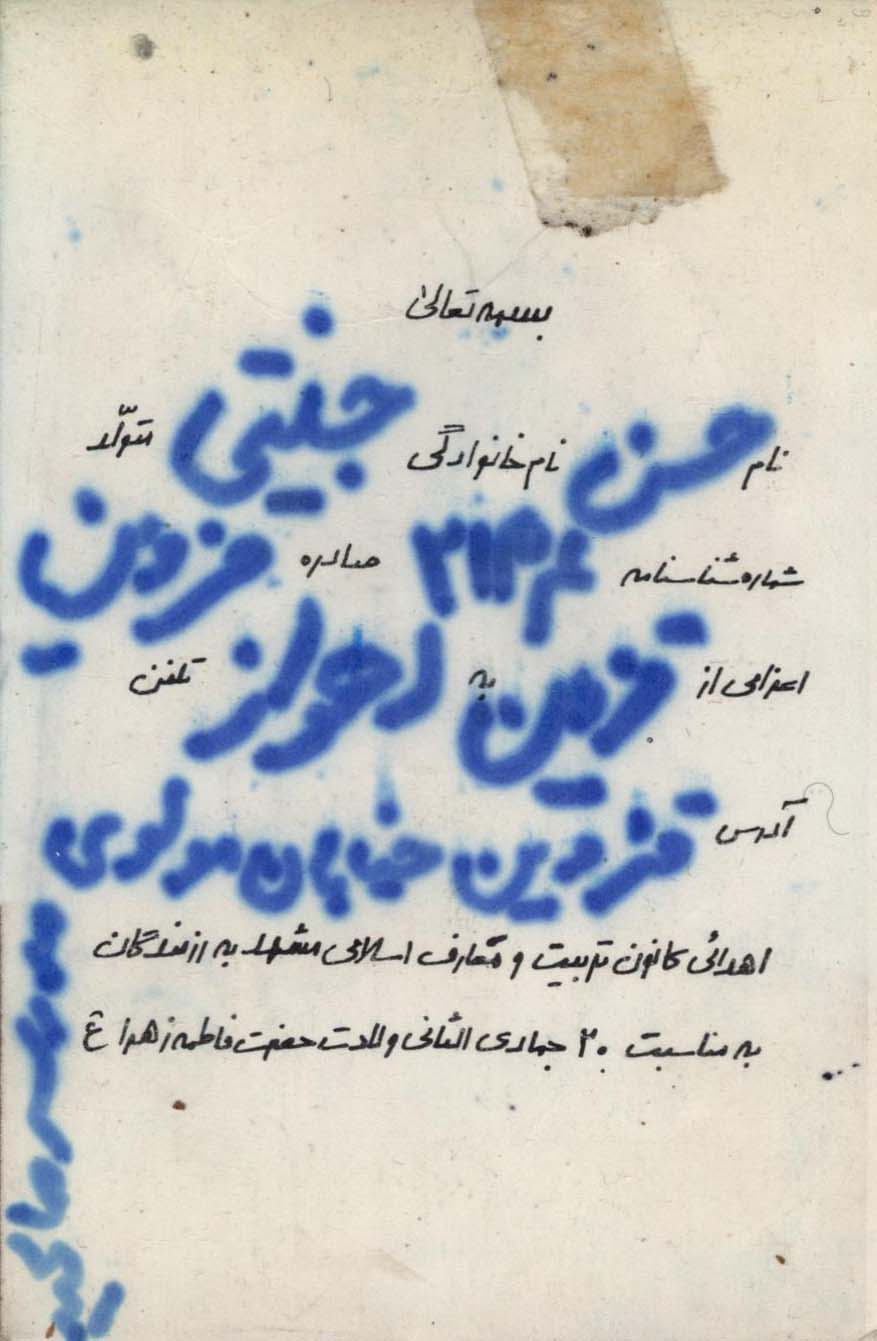 بسمه تعالی
نام حسن نام خانوادگی جنتی متولد
شماره شناسنامه صادره قزوین
اعزامی از قزوین به اهواز تلفن
آدرس قزوین خیابان مولوی
اهدائی کانون تربیت و معارف اسلامی مشهد به رزمندگان
به مناسبت ۲۰ جمادی الثانی ولادت حضرت فاطمه زهرا ع